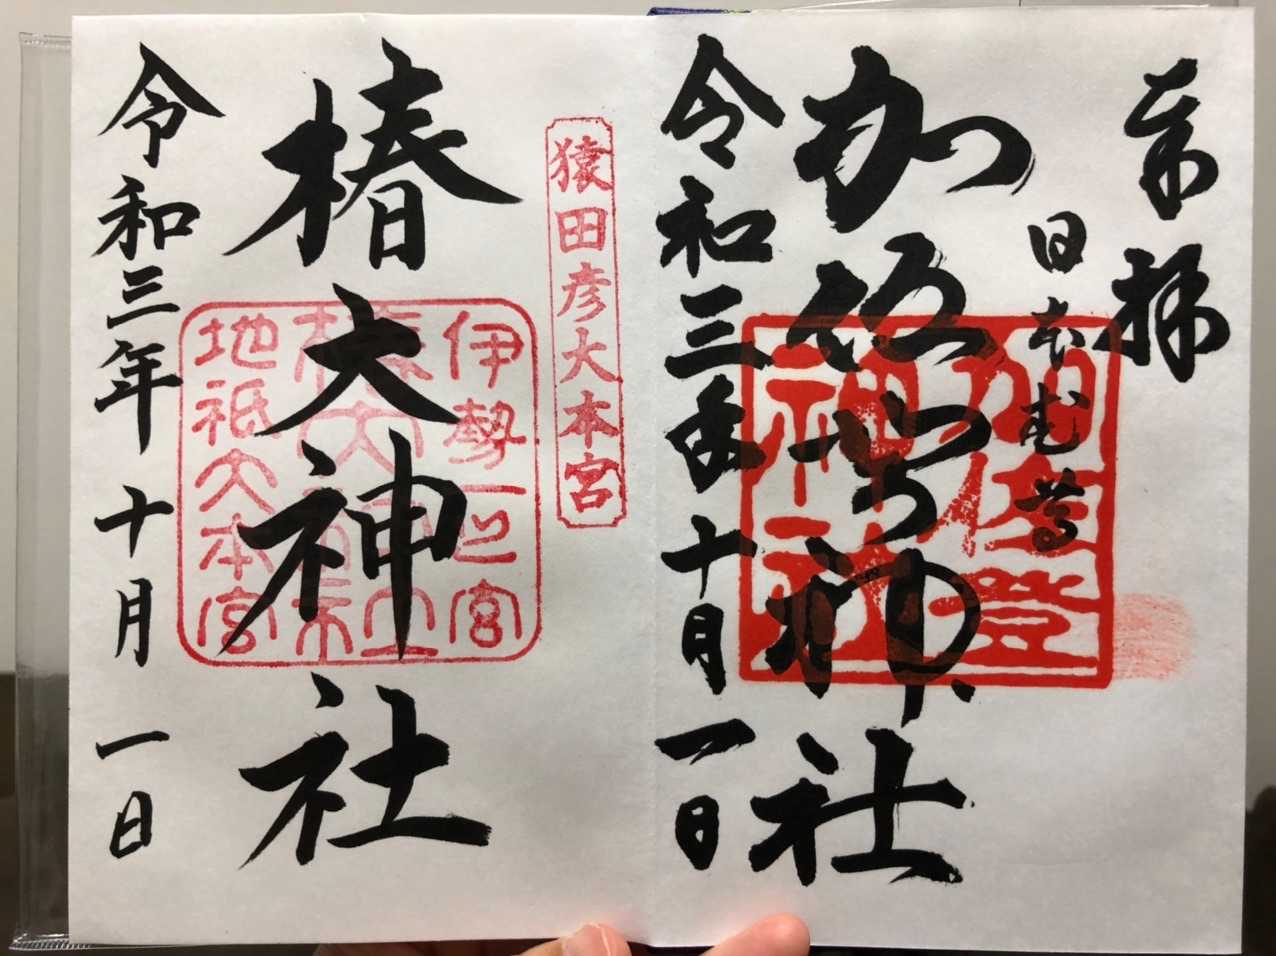 奉拝
日本武尊
加佐登神社
加佐登
神社
令和三年十月一日
猿田彦大本宮
椿大神社
伊勢一之宮
地祇大本宮
令和三年十月一日